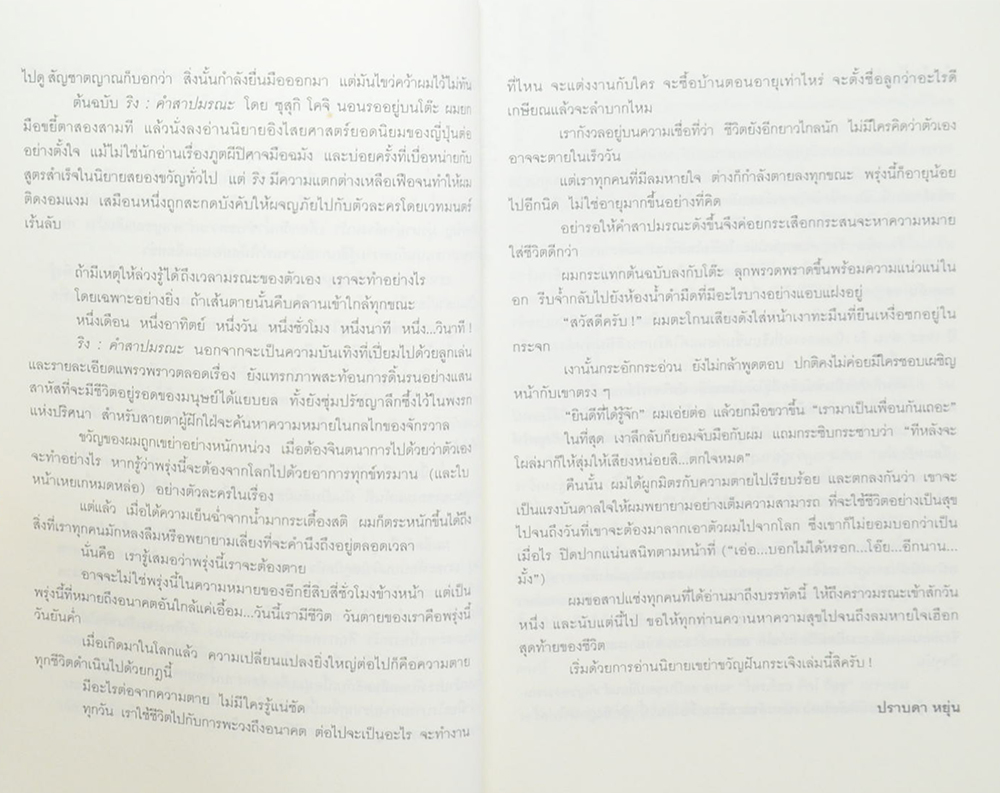 ไปดู สัญชาตญาณก็บอกว่า สิ่งนั้นกำลังยื่นมือออกมา แต่มันไขว่คว้าผมไว้ไม่ทัน
ต้นฉบับ ริง : คำสาปมรณะ โดย ซุสุกิ โคจิ นอนรออยู่บนโต๊ะ ผมยก
มือขยี้ตาสองสามที แล้วนั่งลงอ่านนิยายอิงไสยศาสตร์ยอดนิยมของญี่ปุ่นต่อ
อย่างตั้งใจ แม้ไม่ใช่นักอ่านเรื่องภูตผีปีศาจมือฉมัง และบ่อยครั้งที่เบื่อหน่ายกับ
สูตรสำเร็จในนิยายสยองขวัญทั่วไป แต่ ริง มีความแตกต่างเหลือเฟือจนทำให้ผม
ติดงอมแงม เสมือนหนึ่งถูกสะกดบังคับให้ผจญภัยไปกับตัวละครโดยเวทมนตร์
เร้นลับ
ถ้ามีเหตุให้ล่วงรู้ได้ถึงเวลามรณะของตัวเอง เราจะทำอย่างไร
โดยเฉพาะอย่างยิ่ง ถ้าเส้นตายนั้นคืบคลานเข้าใกล้ทุกขณะ
หนึ่งเดือน หนึ่งอาทิตย์ หนึ่งวัน หนึ่งชั่วโมง หนึ่งนาที หนึ่ง...วินาที !
ริง : คำสาปมรณะ นอกจากจะเป็นความบันเทิงที่เปี่ยมไปด้วยลูกเล่น
และรายละเอียดแพรวพราวตลอดเรื่อง ยังแทรกภาพสะท้อนการดิ้นรนอย่างแสน
สาหัสที่จะมีชีวิตอยู่รอดของมนุษย์ได้แยบยล ทั้งยังซุ่มปรัชญาลึกซึ้งไว้ในพงรก
แห่งปริศนา สำหรับสายตาผู้ฝักใฝ่จะค้นหาความหมายในกลไกของจักรวาล
ขวัญของผมถูกเขย่าอย่างหนักหน่วง เมื่อต้องจินตนาการไปด้วยว่าตัวเอง
จะทำอย่างไร หากรู้ว่าพรุ่งนี้จะต้องจากโลกไปด้วยอาการทุกข์ทรมาน (และใบ
หน้าเหยเกหมดหล่อ) อย่างตัวละครในเรื่อง
แต่แล้ว เมื่อได้ความเย็นฉ่ำจากน้ำมากระเตื้องสติ ผมก็ตระหนักขึ้นได้ถึง
สิ่งที่เราทุกคนมักหลงลืมหรือพยายามเลี่ยงที่จะคำนึงถึงอยู่ตลอดเวลา
นั่นคือ เรารู้เสมอว่าพรุ่งนี้เราจะต้องตาย
อาจจะไม่ใช่พรุ่งนี้ในความหมายของอีกยี่สิบสี่ชั่วโมงข้างหน้า แต่เป็น
พรุ่งนี้ที่หมายถึงอนาคตอันใกล้แค่เอื้อม...วันนี้เรามีชีวิต วันตายของเราคือพรุ่งนี้
วันยันค่ำ
เมื่อเกิดมาในโลกแล้ว ความเปลี่ยนแปลงยิ่งใหญ่ต่อไปก็คือความตาย
ทุกชีวิตดำเนินไปด้วยกฎนี้
มีอะไรต่อจากความตาย ไม่มีใครรู้แน่ชัด
ทุกวัน เราใช้ชีวิตไปกับการพะวงถึงอนาคต ต่อไปจะเป็นอะไร จะทำงาน
ที่ไหน จะแต่งงานกับใคร จะซื้อบ้านตอนอายุเท่าไหร่ จะตั้งชื่อลูกว่าอะไรดี
เกษียณแล้วจะลำบากไหม
เรากังวลอยู่บนความเชื่อที่ว่า ชีวิตยังอีกยาวไกลนัก ไม่มีใครคิดว่าตัวเอง
อาจจะตายในเร็ววัน
แต่เราทุกคนที่มีลมหายใจ ต่างก็กำลังตายลงทุกขณะ พรุ่งนี้ก็อายุน้อย
ไปอีกนิด ไม่ใช่อายุมากขึ้นอย่างที่คิด
อย่ารอให้คำสาปมรณะดังขึ้นจึงค่อยกระเสือกกระสนจะหาความหมาย
ใส่ชีวิตดีกว่า
ผมกระแทกต้นฉบับลงกับโต๊ะ ลุกพรวดพราดขึ้นพร้อมความแน่วแน่ใน
อก รีบจ้ำกลับไปยังห้องน้ำดำมืดที่มีอะไรบางอย่างแอบแฝงอยู่
“สวัสดีครับ !” ผมตะโกนเสียงดังใส่หน้าเงาทะมึนที่ยืนเหงื่อซกอยู่ใน
กระจก
เงานั้นกระอักกระอ่วน ยังไม่กล้าพูดตอบ ปกติคงไม่ค่อยมีใครชอบเผชิญ
หน้ากับเขาตรง ๆ
“ยินดีที่ได้รู้จัก” ผมเอ่ยต่อ แล้วยกมือขวาขึ้น “เรามาเป็นเพื่อนกันเถอะ”
ในที่สุด เงาลึกลับก็ยอมจับมือกับผม แถมกระซิบกระซาบว่า “ทีหลังจะ
โผล่มาก็ให้สุ้มให้เสียงหน่อยสิ...ตกใจหมด”
คืนนั้น ผมได้ผูกมิตรกับความตายไปเรียบร้อย และตกลงกันว่า เขาจะ
เป็นแรงบันดาลใจให้ผมพยายามอย่างเต็มความสามารถ ที่จะใช้ชีวิตอย่างเป็นสุข
ไปจนถึงวันที่เขาจะต้องมาลากเอาตัวผมไปจากโลก ซึ่งเขาก็ไม่ยอมบอกว่าเป็น
เมื่อไร ปิดปากแน่นสนิทตามหน้าที่ (“เอ่อ...บอกไม่ได้หรอก...โอ๊ย...อีกนาน...
มั้ง”)
ผมขอสาปแช่งทุกคนที่ได้อ่านมาถึงบรรทัดนี้ ให้ถึงคราวมรณะเข้าสักวัน
หนึ่ง และนับแต่นี้ไป ขอให้ทุกท่านควานหาความสุขไปจนถึงลมหายใจเฮือก
สุดท้ายของชีวิต
เริ่มด้วยการอ่านนิยายเขย่าขวัญฝันกระเจิงเล่มนี้สิครับ !
ปราบดา หยุ่น